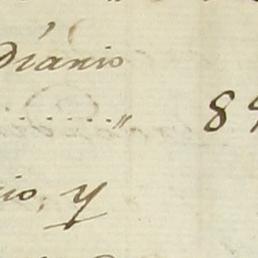 diario
......〃 89
cio, y